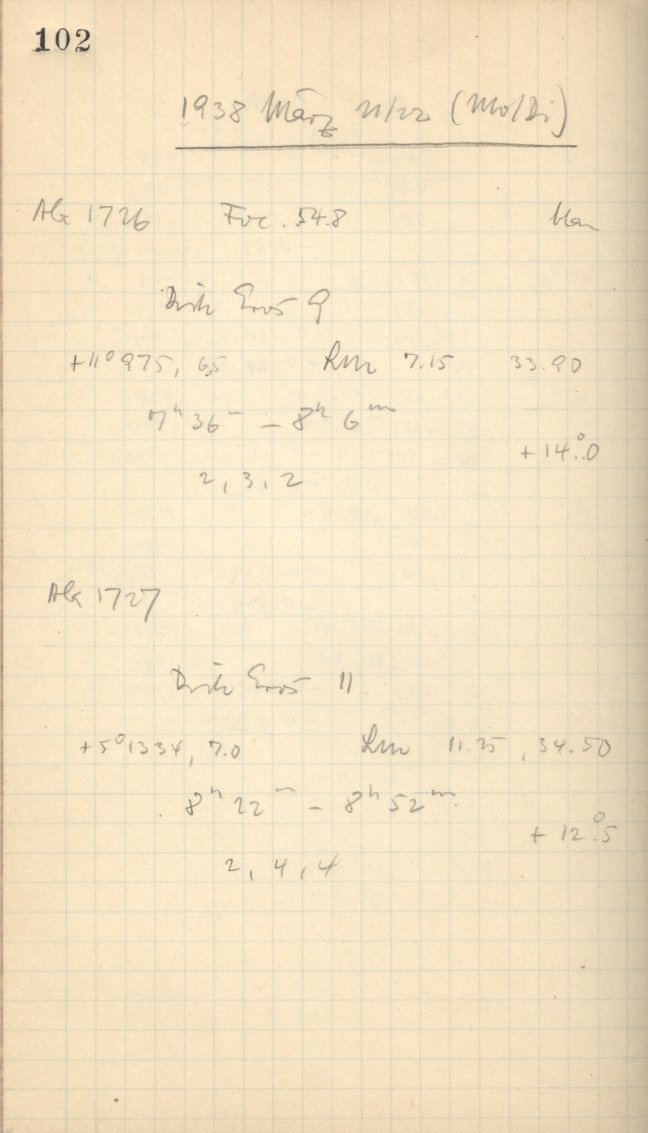 102
1938 März 21/22 (Mo/Di)
1726 Foc. 54.8 blau
Eros 9
+11° 975, 6.5 7.15 33.90
7h 36m – 8h 6m
+14.°0
2, 3, 2
1727
Eros 11
+5° 1334, 7.0 11.25, 34.50
8h 22m – 8h 52m
+12.°5
2, 4, 4